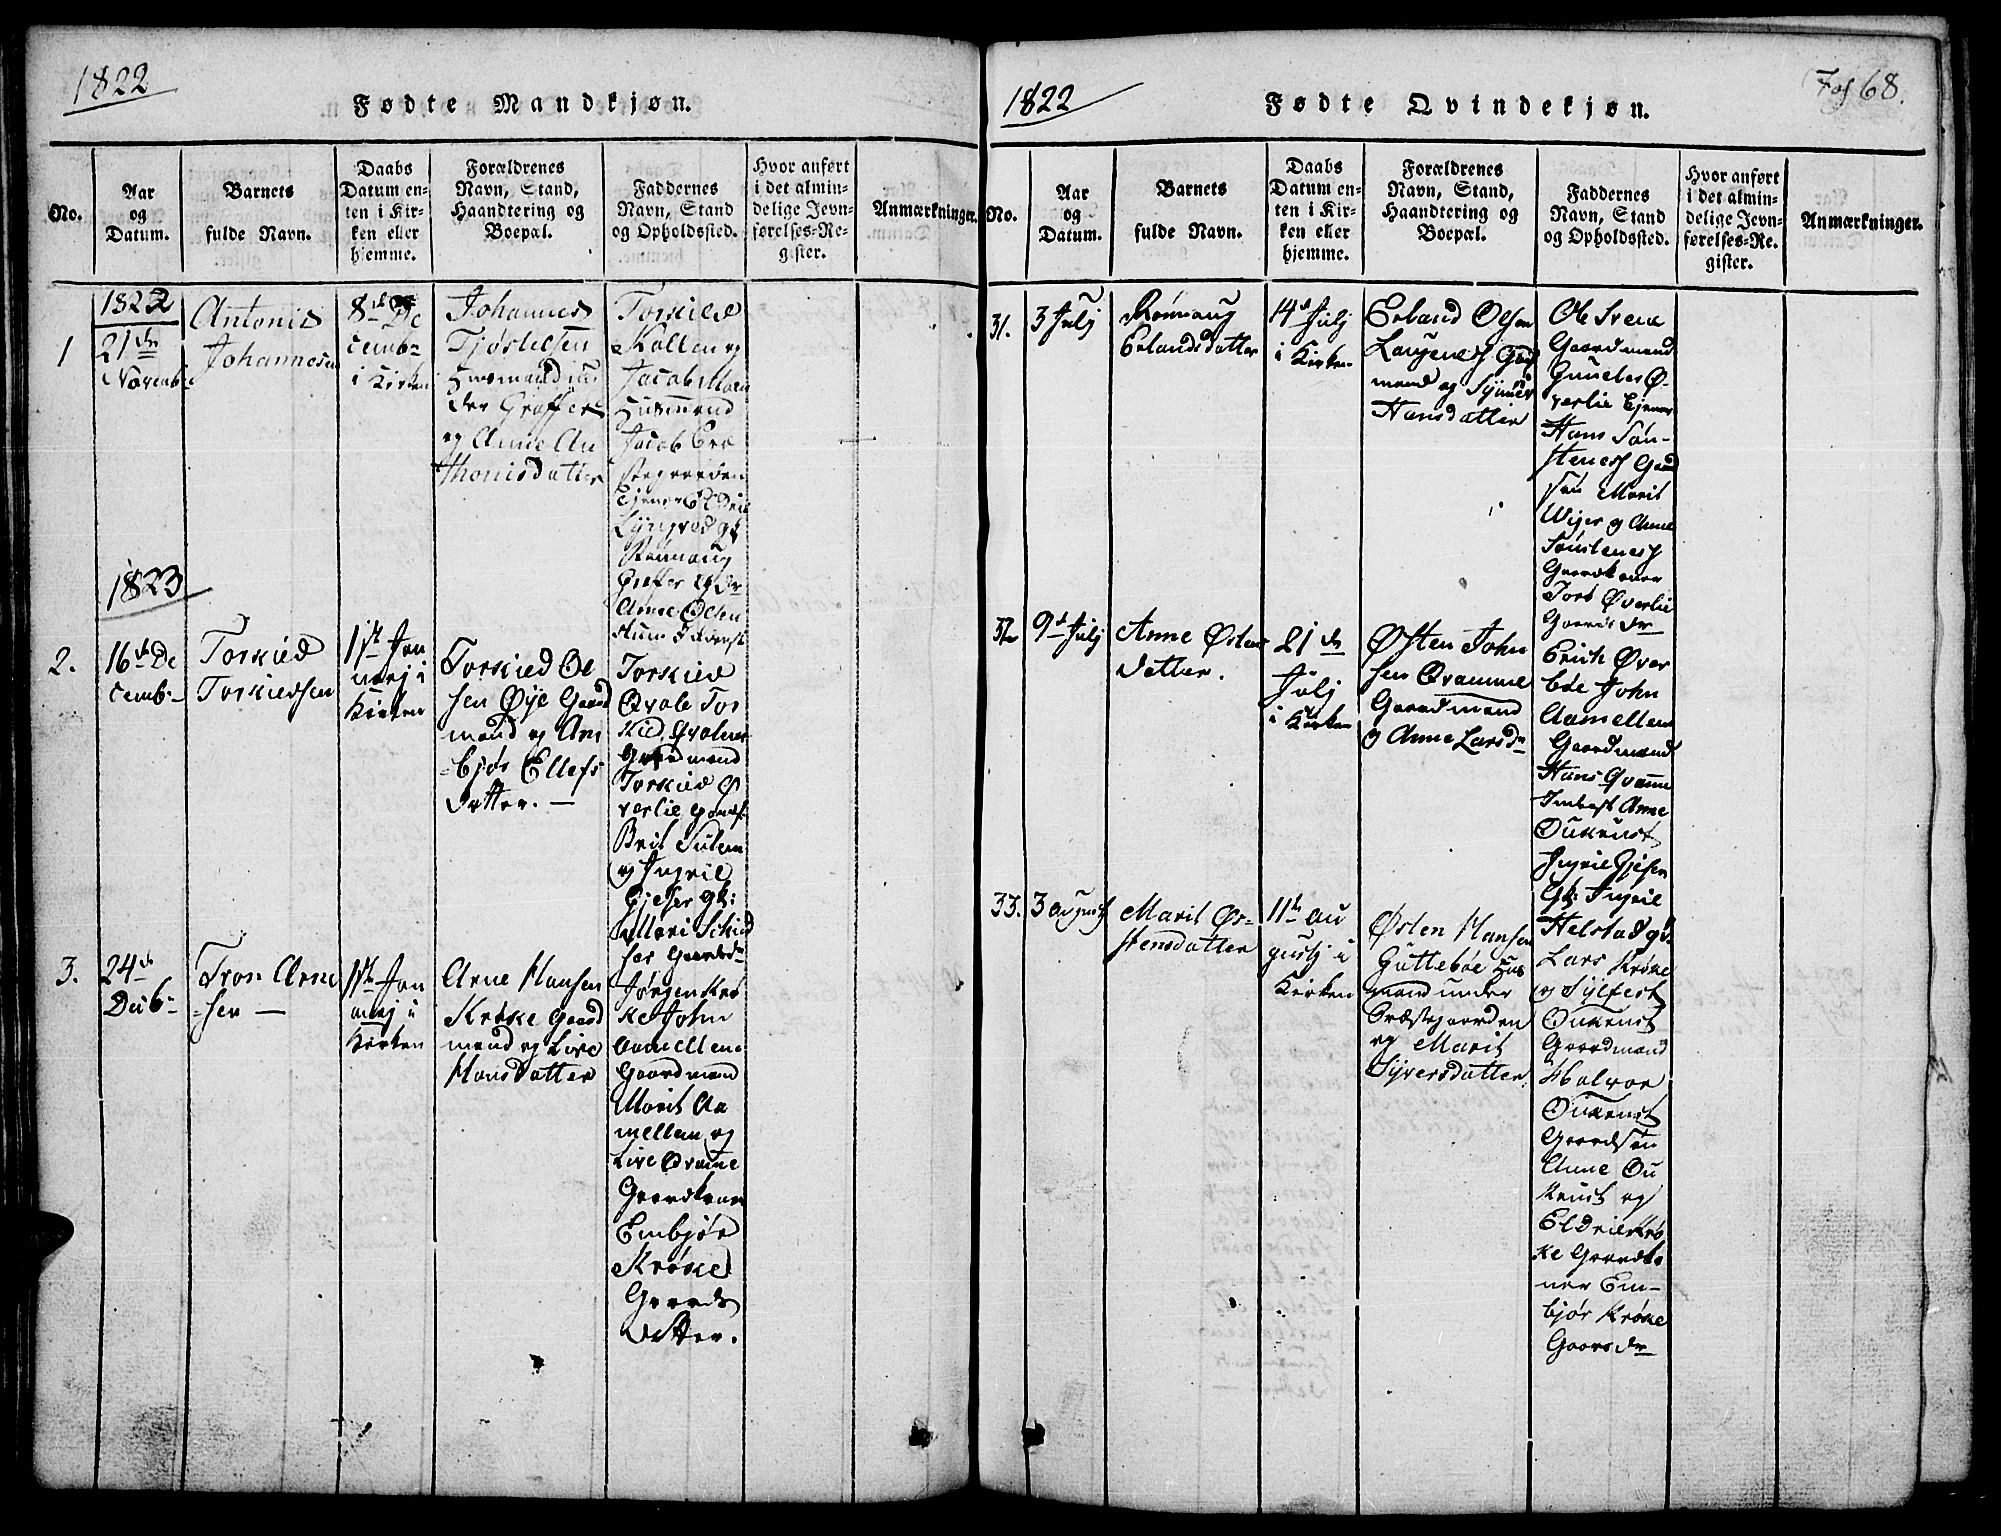 1822
Fødte Mandkjøn.
No.
Aar
og
Datum.
Barnets
fulde Navn.
Daabs
Datum en-
ten i Kir-
ken eller
hjemme.
Forældrenes
Navn, Stand,
Haandtering og
Boepæl.
Faddernes
Navn, Stand
og Opholdssted.
Hvor anført
i det almin-
delige Jevn-
førelses-Re-
gister.
Anmærkninger.
1
1822
21de
Novemb
Antonis
Johannesen
8de De
cemb
i Kirken
Johannes
Tjøstelsen
Huusmand un
der Graffer
og Anne An
thonisdatter
Torkild
Kollen og
Jacob Moen
Huusmænd
Jacob
Ejener Eldrie
Lyngved gk
Rønnaug
Graffer
Anne Olsen
1823
2.
16de De
cemb
Torkied
Torkiedsen
1ste Jan
uarj i
Kirken
Torkied Ol
sen Øye Gaard
mand og Am
bjør Ellefs
datter.
Torkied
Qvale Tor
kied Qvalner
Gaardmænd
Torkied Ø
verlie
Brit Sulem
og Ingrie
Gjeser gk:
Mari Skied
ser Gaardsdr
3.
24de
Decb
Tron Arne
sen
1ste Jan
uarj i
Kirken
Arne Hansen
Krøke Gaard
mand og Live
Hansdatter
Jørgen Krø
ke John
Aamellem
Gaardmænd
Marit Aa
mellem og
Live Qvamme
Gaardkoner
Embjør
Krøke
Gaards
datter.
1822
Fødte Qvindekjøn.
Fol 68.
No.
Aar
og
Datum.
Barnets
fulde Navn.
Daabs
Datum en-
ten i Kir-
ken eller
hjemme.
Forældrenes
Navn, Stand,
Haandtering og
Boepæl.
Faddernes
Navn, Stand
og Opholdssted.
Hvor anført
i det almin-
delige Jevn-
førelses-Re-
gister.
Anmærkninger.
31.
3 Julj
Rønnaug
Erlandsdatter
14de Julj
i Kirken
Erland Olsen
Gaard
mand og Synnev
Hansdatter
Ole Svem
Gaardmand
Gunder Ø-
verlie Ejener
Hans Søn-
stenes Gaard
søn Marit
Wiger og Anne
Sønstenes
Gaardkoner
Tore Øverlie
Gaards dr
32
9de Julj
Anne Østens
datter.
21de
Julj
i Kirken
Østen John
sen Qvamme
Gaardmand
og Anne Larsdr
Erich Øver
bøe John
Aamellem
Gaardmænd
Hans Qvamme
Inderst Anne
Øukenst
Ingrie Gjeser
Gk: Ingrie
Helstad
33.
3 august
Marit Øs-
tensdatter
11te Au
gustj i
Kirken
Østen Hansen
Guttebøe Hus
mand under
Præstegaarden
og Marit
Syversdatter
Lars Krøke
og Sylfest
Øukenst
Gaardmænd
Halvor
Øukenst
Gaardsøn
Anne Øu
kenst og
Eldrie Krø
ke Gaardko
ner Em-
bjør Krøke
Gaardsdr